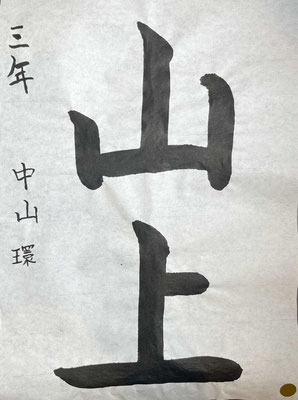 山上
三年 中山環